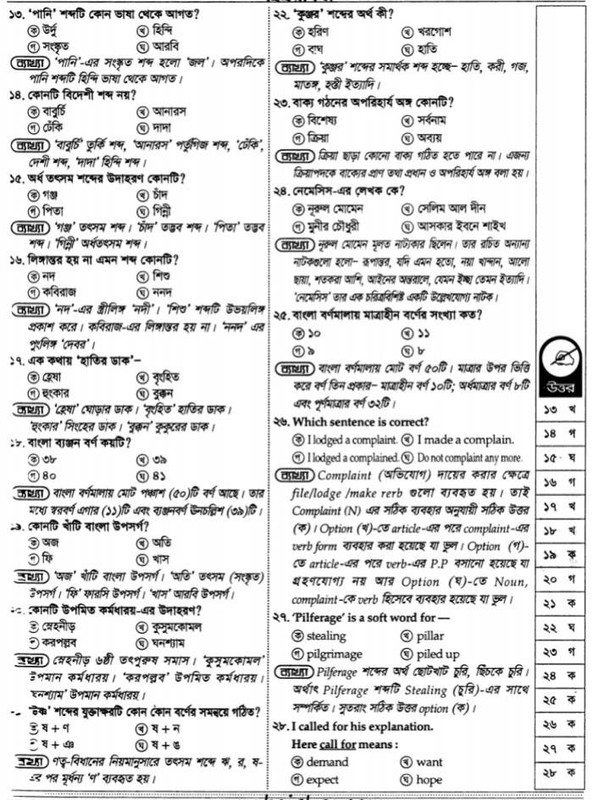 ১৩. 'পানি' শব্দটি কোন ভাষা থেকে আগত?
ক উর্দু খ হিন্দি
গ সংস্কৃত ঘ আরবি
ব্যাখ্যা 'পানি'-এর সংস্কৃত শব্দ হলো 'জল'। অপরদিকে
পানি শব্দটি হিন্দি ভাষা থেকে আগত।
১৪. কোনটি বিদেশী শব্দ নয়?
ক বাবুর্চি খ আনারস
গ ঢেঁকি ঘ দাদা
ব্যাখ্যা 'বাবুর্চি' তুর্কি শব্দ, 'আনারস' পর্তুগিজ শব্দ, 'ঢেঁকি',
দেশী শব্দ, 'দাদা' হিন্দি শব্দ।
১৫. অর্ধ তৎসম শব্দের উদাহরণ কোনটি?
ক গঞ্জ খ চাঁদ
গ পিতা ঘ গিন্নী
ব্যাখ্যা 'গঞ্জ' তৎসম শব্দ। 'চাঁদ' তদ্ভব শব্দ। 'পিতা' তদ্ভব
শব্দ। 'গিন্নী' অর্ধতৎসম শব্দ।
১৬. লিঙ্গান্তর হয় না এমন শব্দ কোনটি?
ক নদ খ শিশু
গ কবিরাজ ঘ ননদ
ব্যাখ্যা 'নদ'-এর স্ত্রীলিঙ্গ 'নদী'। 'শিশু' শব্দটি উভয়লিঙ্গ
প্রকাশ করে। কবিরাজ-এর লিঙ্গান্তর হয় না। 'ননদ' এর
পুংলিঙ্গ 'দেবর'।
১৭. এক কথায় 'হাতির ডাক'–
ক হ্রেষা খ বৃংহিত
গ হুংকার ঘ বুক্কন
ব্যাখ্যা 'হ্রেষা' ঘোড়ার ডাক। 'বৃংহিত' হাতির ডাক।
'হুংকার' সিংহের ডাক। 'বুক্কন' কুকুরের ডাক।
১৮. বাংলা ব্যঞ্জন বর্ণ কয়টি?
ক ৩৮ খ ৩৯
গ ৪০ ঘ ৪১
ব্যাখ্যা বাংলা বর্ণমালায় মোট পঞ্চাশ (৫০)টি বর্ণ আছে। তার
মধ্যে স্বরবর্ণ এগার (১১)টি এবং ব্যঞ্জনবর্ণ ঊনচল্লিশ (৩৯)টি।
কোনটি খাঁটি বাংলা উপসর্গ?
ক অজ খ অতি
গ ফি ঘ খাস
ব্যাখ্যা 'অজ' খাঁটি বাংলা উপসর্গ। 'অতি' তৎসম (সংস্কৃত)
উপসর্গ। 'ফি' ফারসি উপসর্গ। 'খাস' আরবি উপসর্গ।
কোনটি উপমিত কর্মধারয়-এর উদাহরণ?
স্নেহনীড় খ কুসুমকোমল
করপল্লব ঘ ঘনশ্যাম
ব্যাখ্যা স্নেহনীড় ৬ষ্ঠী তৎপুরুষ সমাস। 'কুসুমকোমল'
উপমান কর্মধারয়। 'করপল্লব' উপমিত কর্মধারয়।
'ঘনশ্যাম' উপমান কর্মধারয়।
'উষ্ণ' শব্দের যুক্তাক্ষরটি কোন কোন বর্ণের সমন্বয়ে গঠিত?
ষ + ণ খ ষ + ন
ষ + ঞ ঘ ষ + ঙ
ব্যাখ্যা ণত্ব-বিধানের নিয়মানুসারে তৎসম শব্দে ঋ, র, ষ-
এর পর মূর্ধন্য 'ণ' ব্যবহৃত হয়।
২২. 'কুঞ্জর' শব্দের অর্থ কী?
ক হরিণ খ খরগোশ
গ বাঘ ঘ হাতি
ব্যাখ্যা 'কুঞ্জর' শব্দের সমার্থক শব্দ হচ্ছে– হাতি, করী, গজ,
মাতঙ্গ, হস্তী ইত্যাদি।
২৩. বাক্য গঠনের অপরিহার্য অঙ্গ কোনটি?
ক বিশেষ্য খ সর্বনাম
গ ক্রিয়া ঘ অব্যয়
ব্যাখ্যা ক্রিয়া ছাড়া কোনো বাক্য গঠিত হতে পারে না। এজন্য
ক্রিয়াপদকে বাক্যের প্রাণ তথা প্রধান ও অপরিহার্য অঙ্গ বলা হয়।
২৪. নেমেসিস-এর লেখক কে?
ক নূরুল মোমেন খ সেলিম আল দীন
গ মুনীর চৌধুরী ঘ আসকার ইবনে শাইখ
ব্যাখ্যা নূরুল মোমেন মূলত নাট্যকার ছিলেন। তার রচিত অন্যান্য
নাটকগুলো হলো– রূপান্তর, যদি এমন হতো, নয়া খান্দান, আলো
ছায়া, শতকরা আশি, আইনের অন্তরালে, যেমন ইচ্ছা তেমন ইত্যাদি।
'নেমেসিস' তার এক চরিত্রবিশিষ্ট একটি উল্লেখযোগ্য নাটক।
২৫. বাংলা বর্ণমালায় মাত্রাহীন বর্ণের সংখ্যা কত?
ক ১০ খ ১১
গ ৯ ঘ ৮
ব্যাখ্যা বাংলা বর্ণমালায় মোট বর্ণ ৫০টি। মাত্রার উপর ভিত্তি
করে বর্ণ তিন প্রকার– মাত্রাহীন বর্ণ ১০টি; অর্ধমাত্রার বর্ণ ৮টি
এবং পূর্ণমাত্রার বর্ণ ৩২টি।
২৬. Which sentence is correct?
ক I lodged a complaint. খ I made a complain.
গ I lodged a complained. ঘ Do not complaint any more.
ব্যাখ্যা Complaint (অভিযোগ) দায়ের করার ক্ষেত্রে
file/lodge /make rerb গুলো ব্যবহৃত হয়। তাই
Complaint (N) এর সঠিক ব্যবহার অনুযায়ী সঠিক উত্তর
(ক)। Option (খ)-তে article-এর পরে complaint-এর
verb form ব্যবহার করা হয়েছে যা ভুল। Option (গ)-
তে article-এর পরে verb-এর P.P বসানো হয়েছে যা
গ্রহণযোগ্য নয় আর Option (ঘ)-তে Noun,
complaint-কে verb হিসেবে ব্যবহার হয়েছে যা ভুল।
২৭. 'Pilferage' is a soft word for —
ক stealing খ pillar
গ pilgrimage ঘ piled up
ব্যাখ্যা Pilferage শব্দের অর্থ ছোটখাট চুরি, ছিঁচকে চুরি।
অর্থাৎ Pilferage শব্দটি Stealing (চুরি)-এর সাথে
সম্পর্কিত। সুতরাং সঠিক উত্তর option (ক)।
২৮. I called for his explanation.
Here call for means :
ক demand খ want
গ expect ঘ hope
উত্তর
১৩ খ
১৪ গ
১৫ ঘ
১৬ গ
১৭ খ
১৮ খ
১৯ ক
২০ গ
২১ ক
২২ ঘ
২৩ গ
২৪ ক
২৫ ক
২৬ ক
২৭ ক
২৮ ক